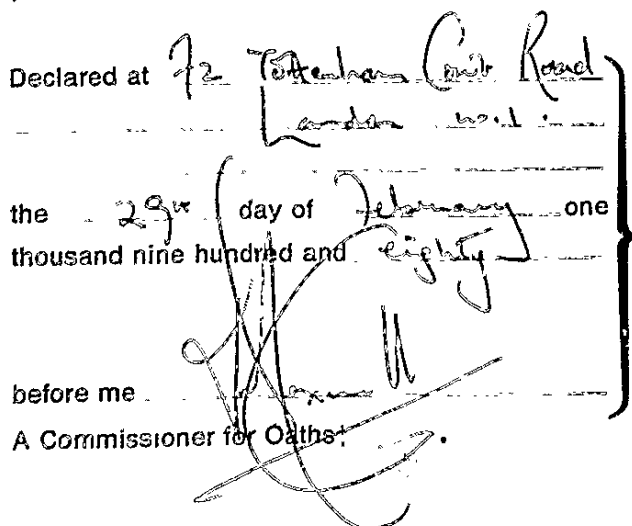 Declared at 72 Tottenham Court Road
London
the 29th day of February one
thousand nine hundred and eighty
before me
A Commissioner for Oaths.